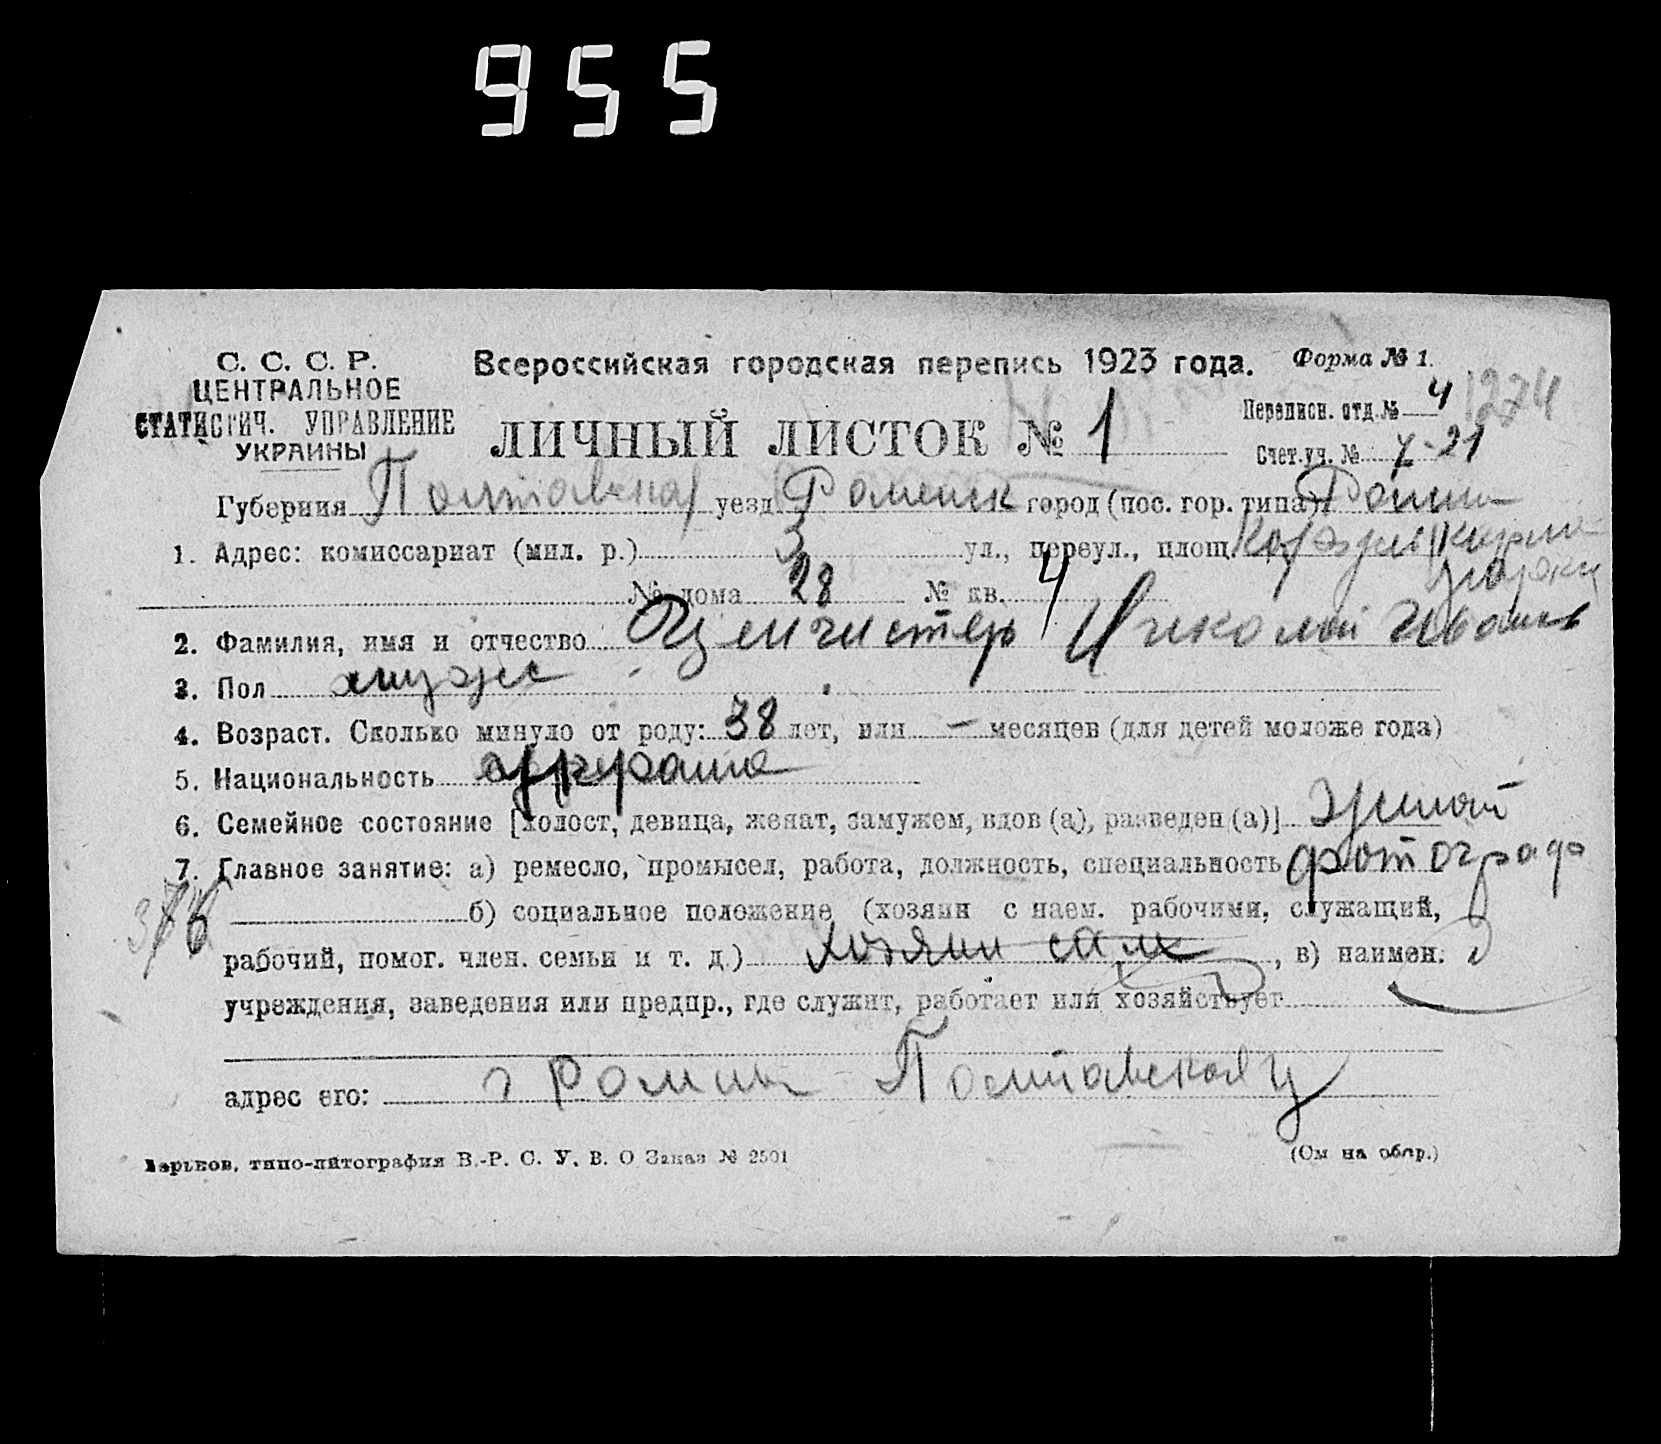 955
С. С. С. Р.
ЦЕНТРАЛЬНОЕ
СТАТИСТИЧ. УПРАВЛЕНИЕ
УКРАИНЫ
Всероссийская городская перепись 1923 года.
Форма № 1.
ЛИЧНЫЙ ЛИСТОК № 1
Переписн. отд. № 4 1274
Счет. уч. № -21
Губерния Полтавская уезд Роменск город (пос. гор. типа) Ромны
1. Адрес: комиссариат (мил. р.) 3 ул., переул., площ.
№ дома 28 № кв. 4
2. Фамилия, имя и отчество Николай Иванов
3. Пол мужс
4. Возраст. Сколько минуло от роду: 38 лет, или — месяцев (для детей моложе года)
5. Национальность
6. Семейное состояние [холост, девица, женат, замужем, вдов (а), разведен (а)]
7. Главное занятие: а) ремесло, промысел, работа, должность, специальность фотограф
б) социальное положение (хозяин с наем. рабочими, служащий,
рабочий, помог. член. семьи и т. д.) хозяин сам, в) наимен.
учреждения, заведения или предпр., где служит, работает или хозяйствует
адрес его: г Ромны Полтавской
Харьков, типо-литография В.-Р. С. У. В. О Заказ № 2501
(См на обор.)